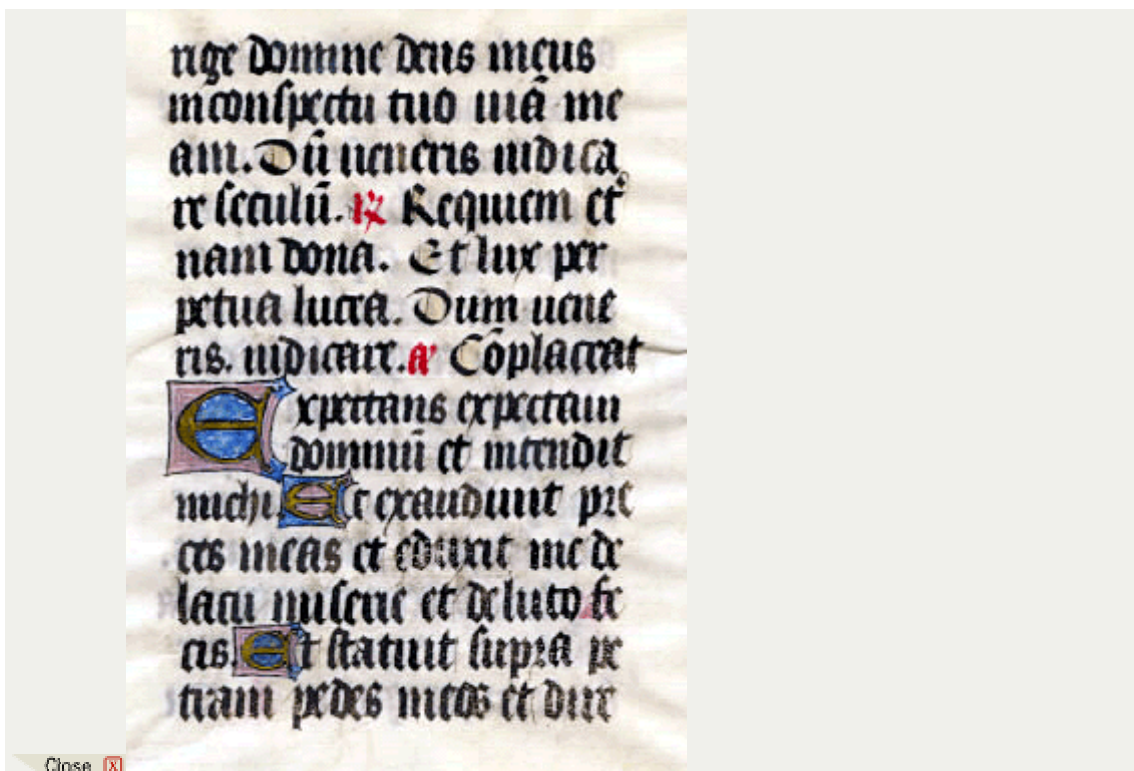 rige domine deus meus
inconspectu tuo uiā me
am. Dū ueneris iudica
re seculū. ℟ Requiem et̾
nam dona. Et lux per
petua lucea. Dum uene
ris. iudicare. a̾ Cōplaceat
Expectans expectaui
dominū et intendit
michi. Et exaudiuit pre
ces meas et eduxit me de
lacu miserie et deluto fe
cis. Et statuit supra pe
tram pedes meos et dire
Close X